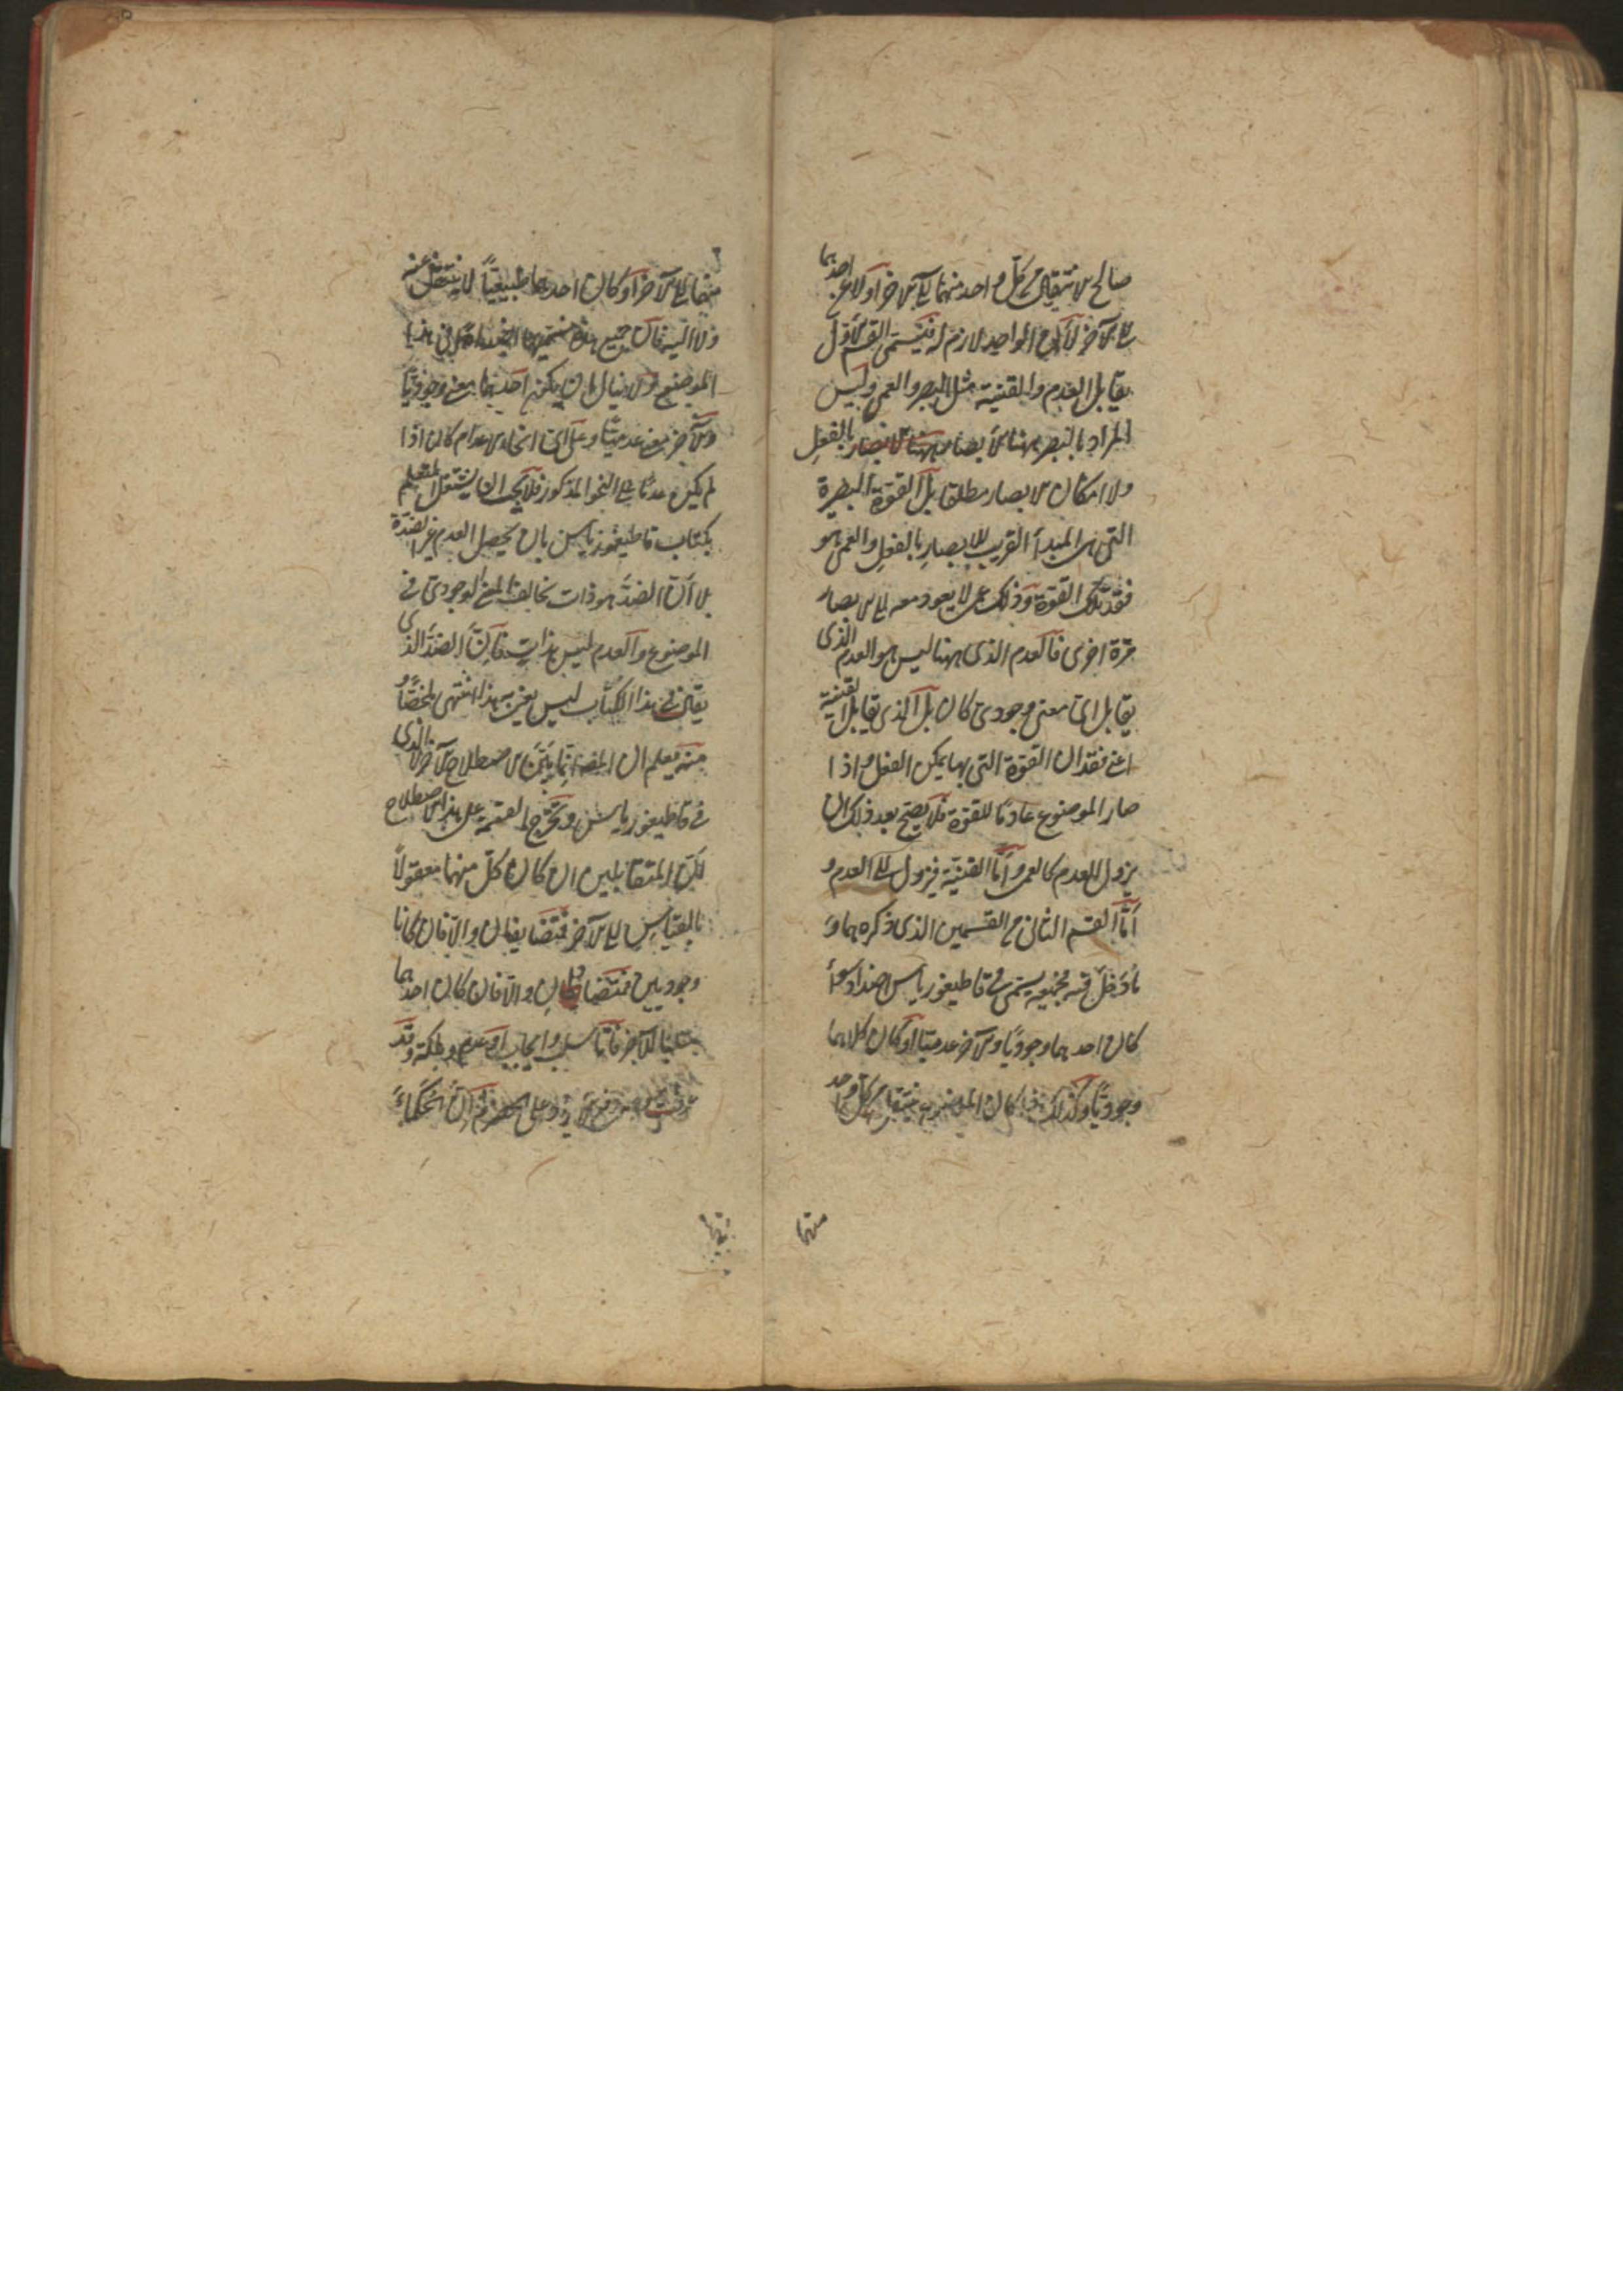 صالح للانتقال من كل واحد منهما الى الآخر او لا عن احدهما
الى الآخر لأن الواحد لازم له فيسمى القسم الأول
يقابل العدم والقنية مثل البصر والعمى وليس
المراد بالبصر ههنا الابصار ههنا الابصار بالفعل
ولا امكان الابصار مطلقا بل القوة البصرية
التى هى المبدأ القريب للابصار بالفعل والعمى هو
فقد تلك القوة وذلك عمى لا يعود معه الى الابصار
مرة اخرى فالعدم الذى ههنا ليس هو العدم الذى
يقابل اى معنى وجودى كان بل الذى يقابل القنية
اعنى فقدان القوة التى بها يمكن الفعل واذا
صار الموضوع عادمًا للقوة فلا يصح بعد ذلك ان
يزول العدم كالعمى وأمّا القنية فيزول الى العدم و
أمّا القسم الثانى من القسمين الذى ذكره هما و
ما دخل فيه فجميعه يسمى فى قاطيغورياس اضدادا سواءً
كان احدهما وجوديًا والآخر عدميًا او كان كلاهما
وجوديًا وكذلك اذا كان الموضوع ينتقل من كل واحد
منهما
منهما الى الآخر او كان احدهما طبيعيًا لا ينتقل عنه
ولا اليه فان جميع هذا يسميها اضدادا فى هذا
الموضع ولا يبال بان يكون احدهما معنى وجوديًا
والآخر معنى عدميًا وعلى اى انحاء الاعدام كان اذا
لم يكن عدمًا على النحو المذكور فلا يجب ان يشتغل المتعلم
بكتاب قاطيغورياس بان يحصل العدم غير الضد
بلا أن الضدّ هو ذات يخالف المعنى الوجودى فى
الموضوع والعدم ليس بذات فان الضدّ الذى
يقال فى هذا الكتاب ليس يعنى به هذا انتهى ملخصًا و
منه يعلم ان الحصر انما يتم بالاصطلاح الآخر الذى
فى قاطيغورياس وتخرج القسمة على هذا الاصطلاح
لكن المتقابلين ان كان كل منهما معقولاً
بالقياس الى الآخر فمتضايفان والّا فان كانا
وجوديين فمتضادان والّا فان كان احدهما
سلبًا للآخر فامّا سلب وايجاب او عدم وملكة وقد